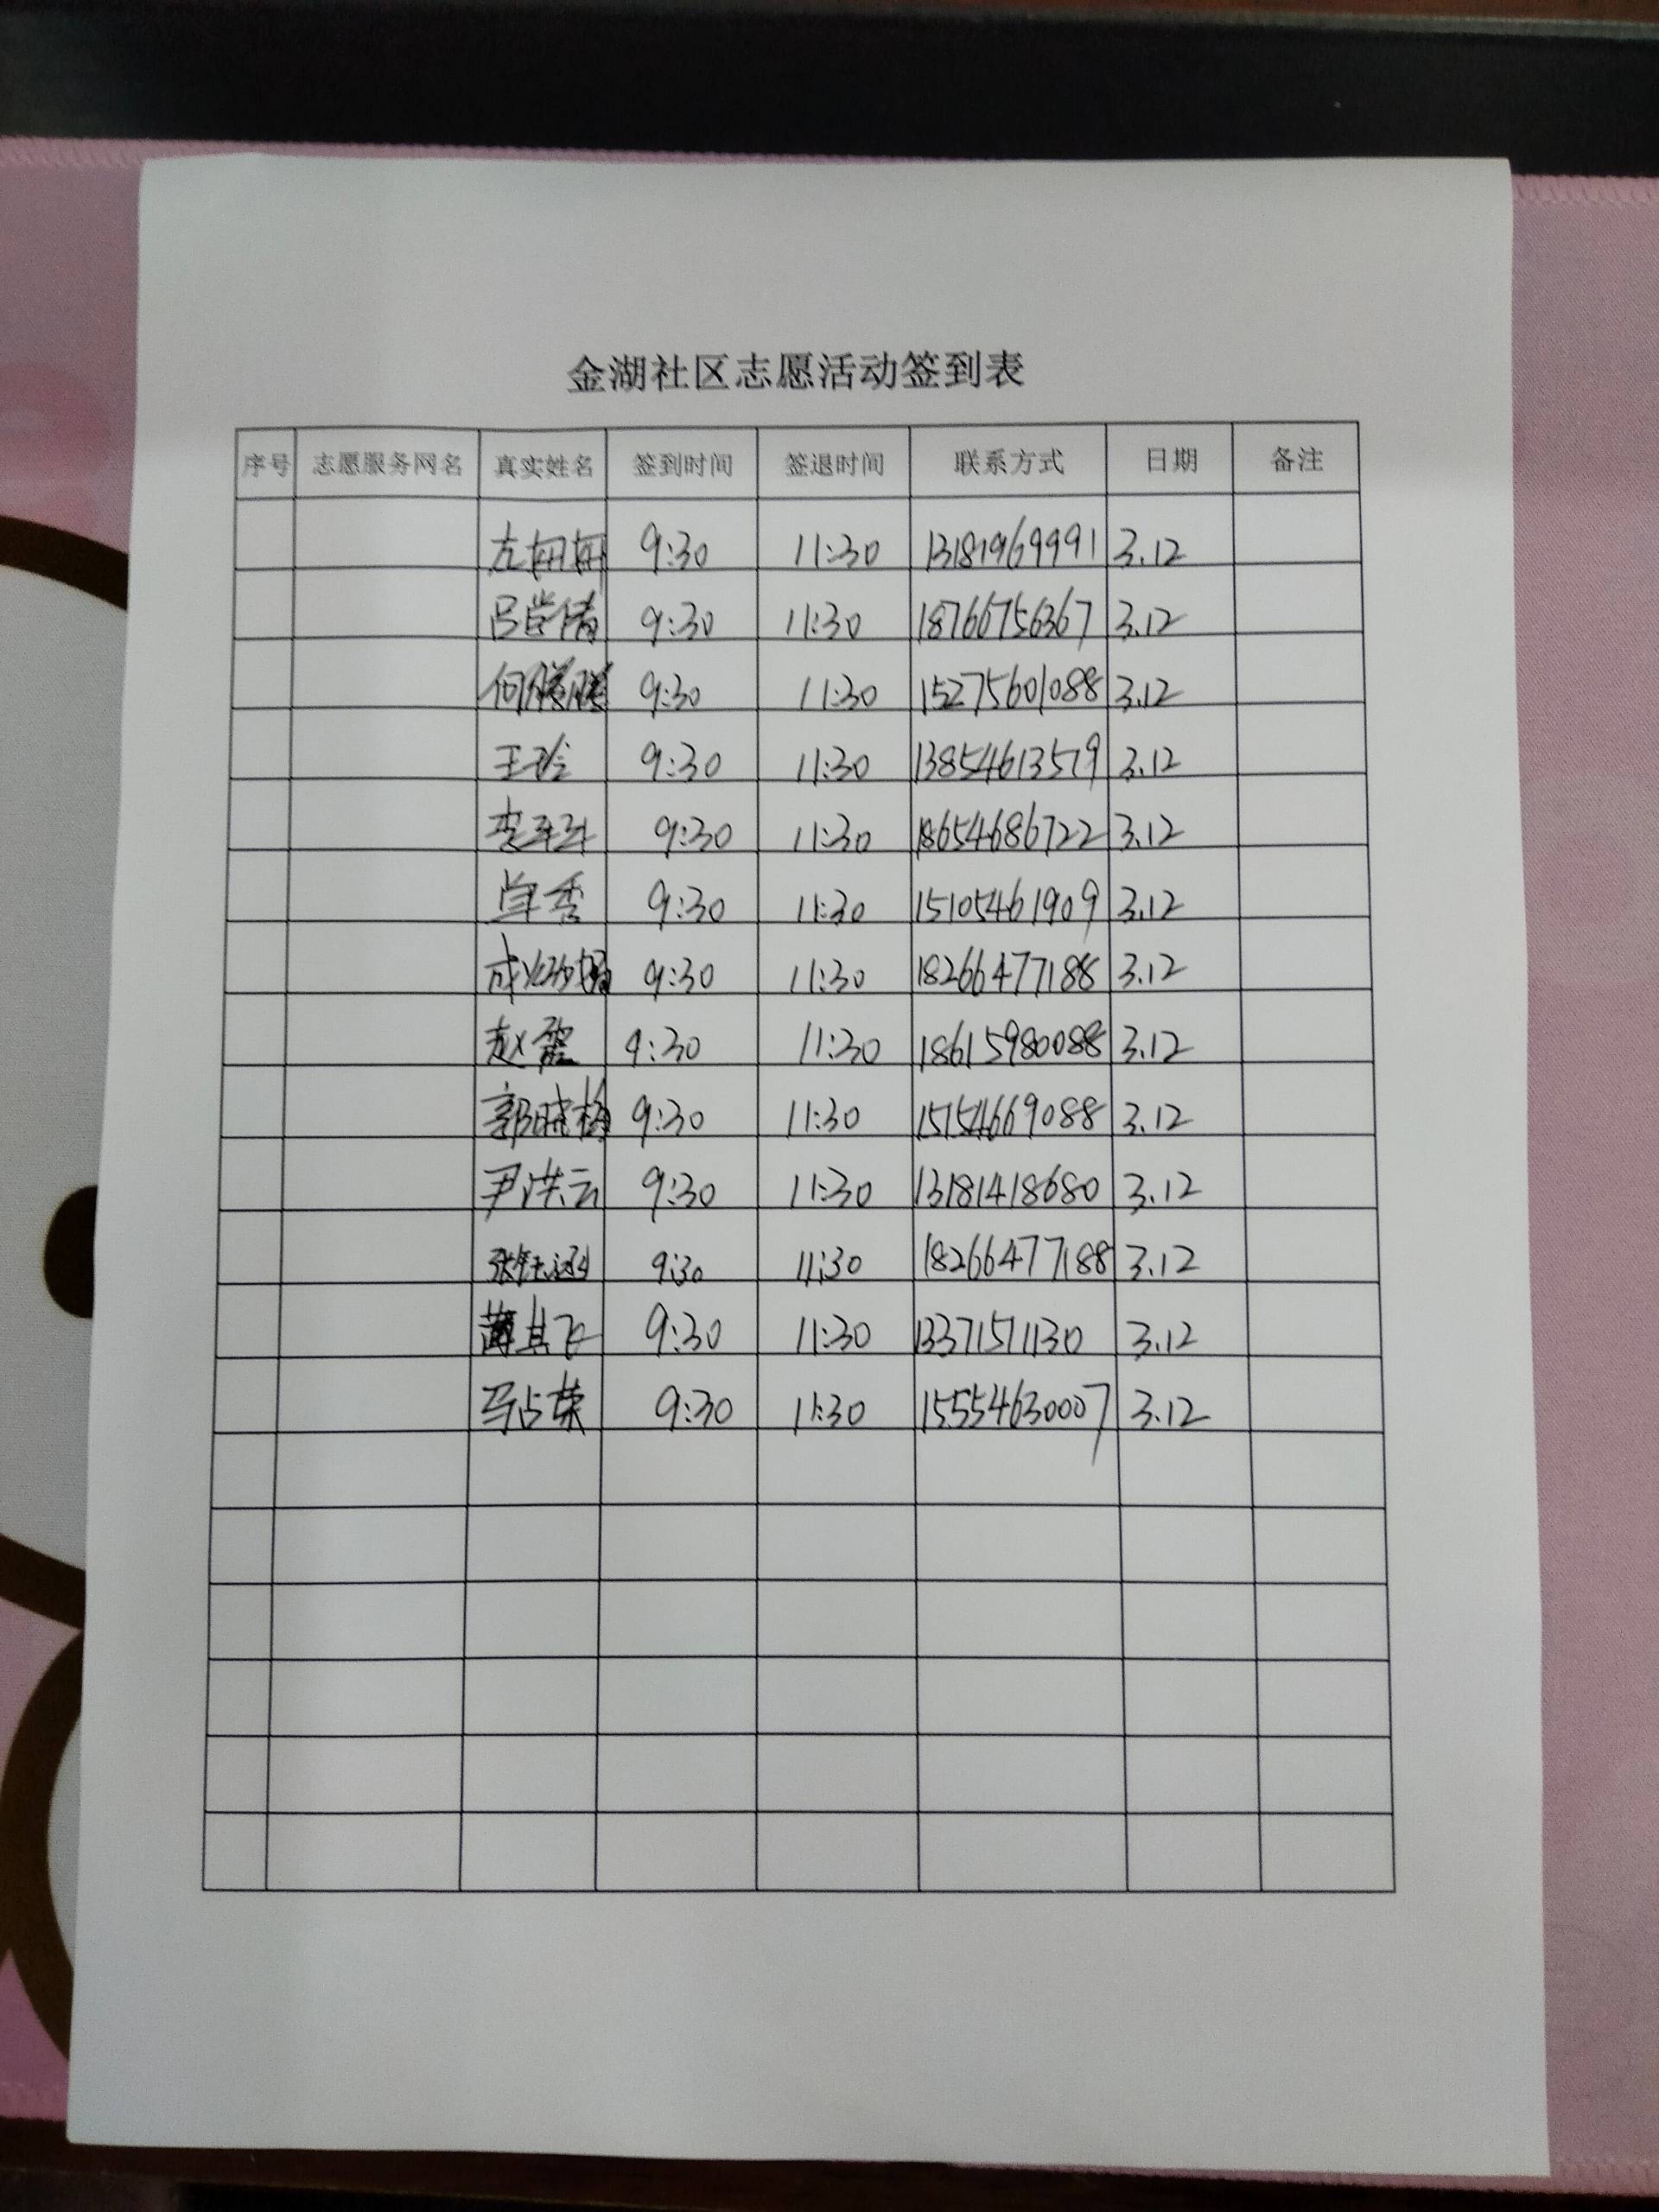 金湖社区志愿活动签到表
序号 志愿服务网名 真实姓名 签到时间 签退时间 联系方式 日期 备注
左冉冉 9:30 11:30 13181969991 3.12
吕莹倩 9:30 11:30 18766756367 3.12
何 9:30 11:30 15275601088 3.12
王玲 9:30 11:30 13854613579 3.12
李 9:30 11:30 18654686722 3.12
单秀 9:30 11:30 15105461909 3.12
成 9:30 11:30 18266477188 3.12
赵 9:30 11:30 18615980088 3.12
郭晓梅 9:30 11:30 15154669088 3.12
尹洪云 9:30 11:30 13181418680 3.12
张钰涵 9:30 11:30 18266477188 3.12
薄其飞 9:30 11:30 13371571130 3.12
马占荣 9:30 11:30 15554630007 3.12